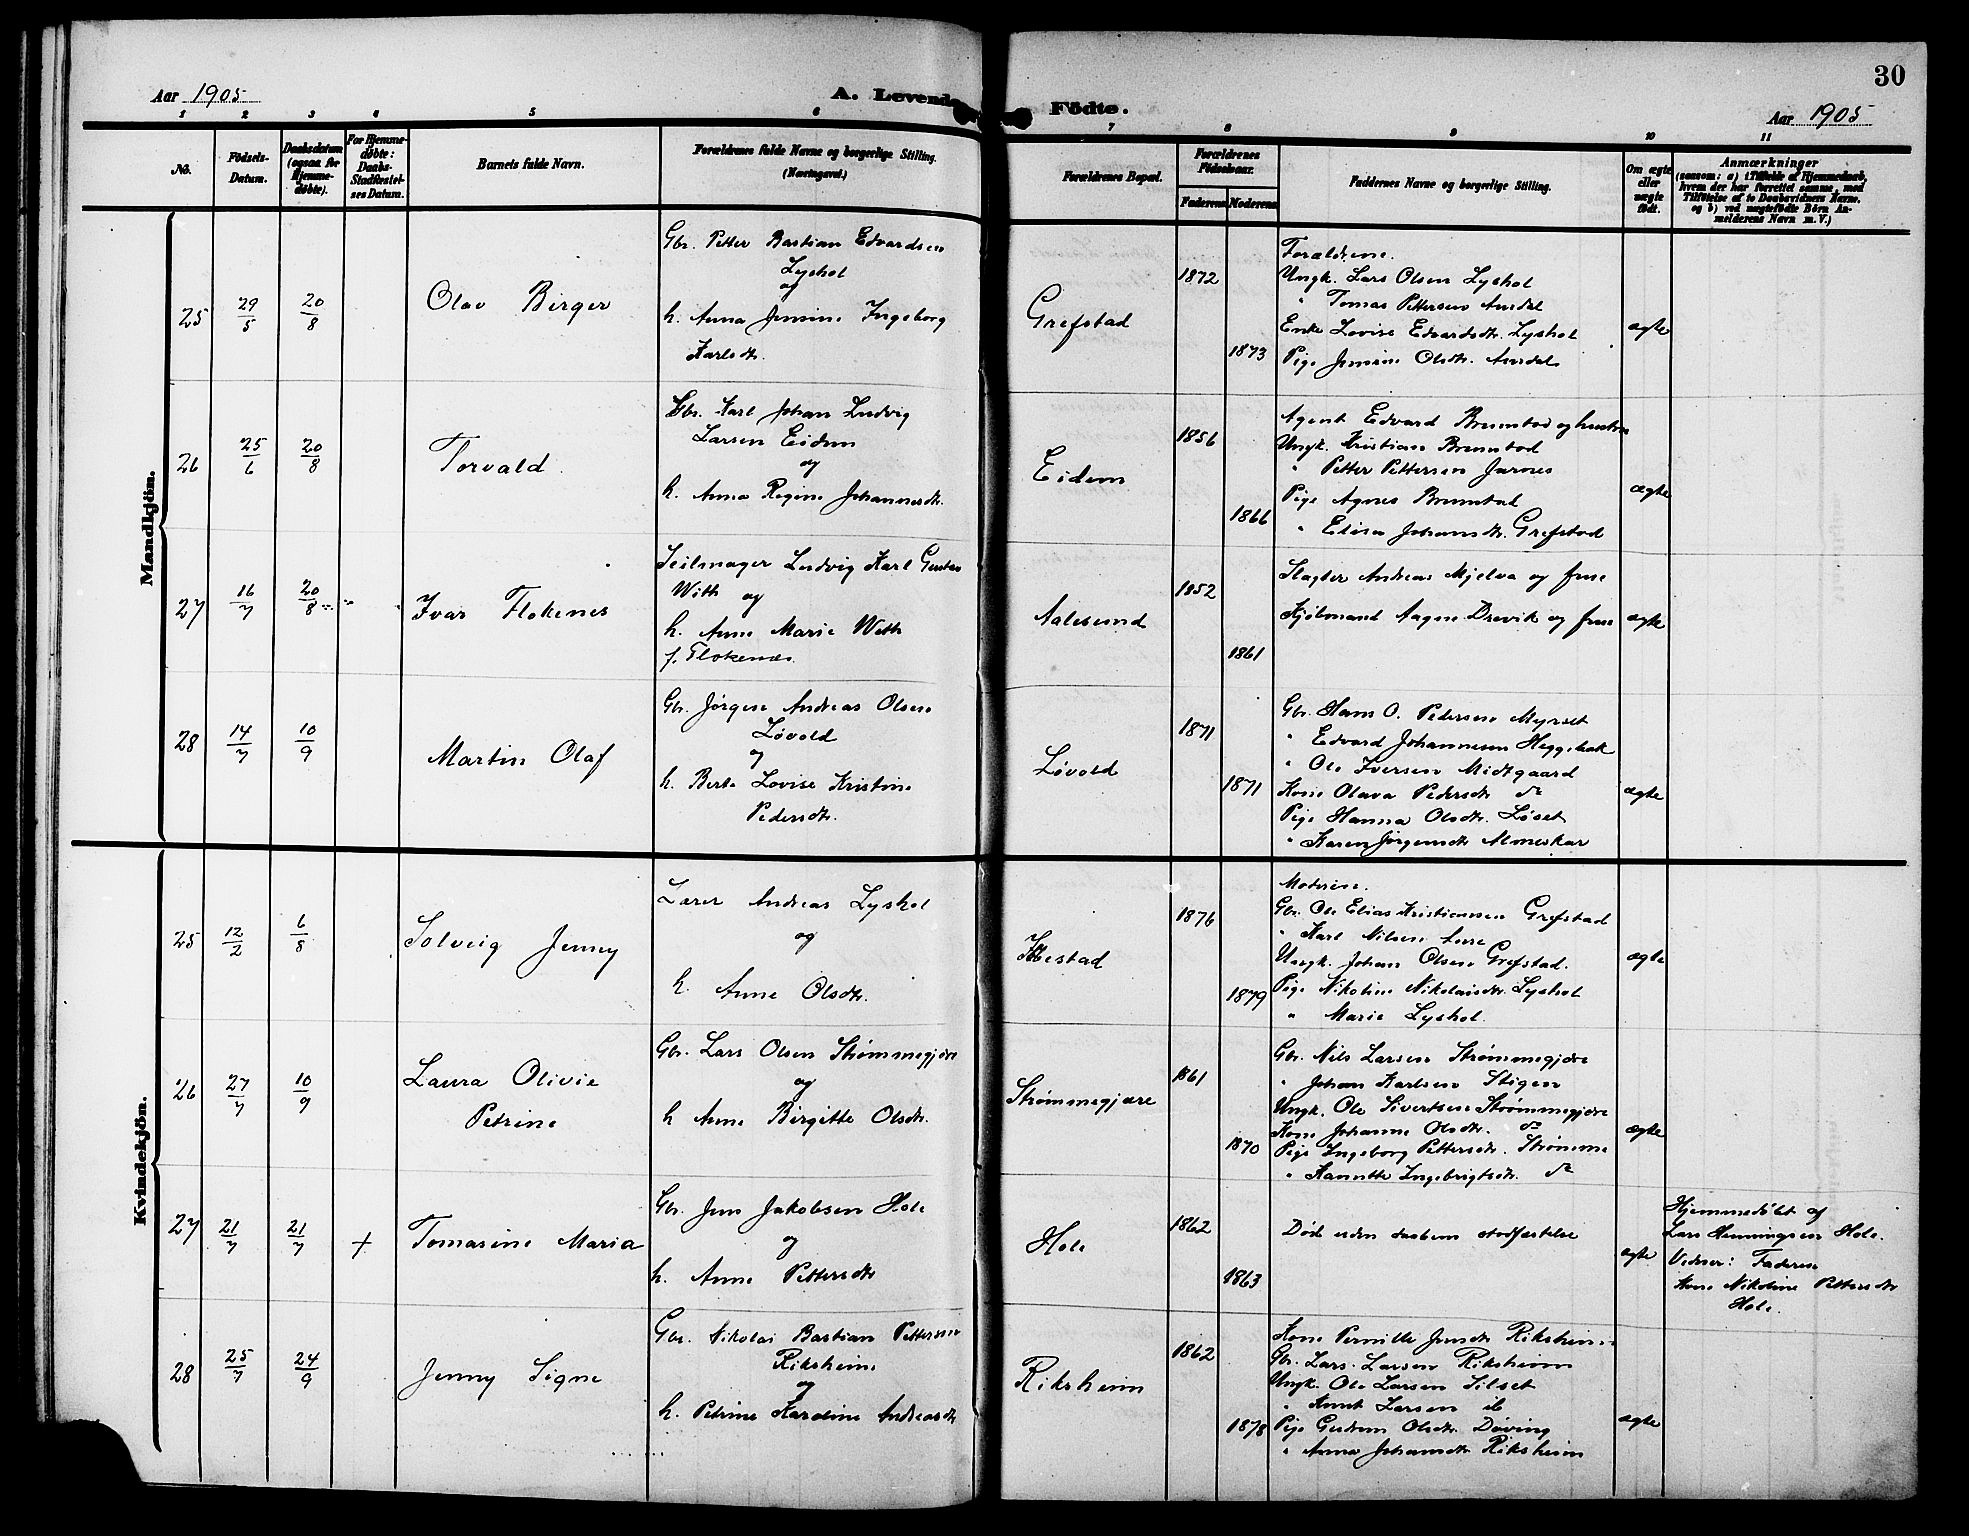 30
Aar 1905
A. Levende Födte.
Aar 1905
1 2 3 4 5 6 7 8 9 10 11
No.
Födsels-Datum.
Daabsdatum (ogsaa for Hjemmedøbte).
For Hjemmedøbte: Daabs-Stadfæstelses Datum.
Barnets fulde Navn.
Forældrenes fulde Navne og borgerlige Stilling. (Næringsvei.)
Forældrenes Bopæl.
Forældrenes Födselsaar.
Faderens Moderens
Faddernes Navne og borgerlige Stilling.
Om ægte eller uægte födt.
Anmærkninger
(saasom: a) i Tilfælde af Hjemmedaab, hvem der har forrettet samme, med Tilföielse af to Daabsvidners Navne, og b) ved uægtefödte Börn Anmelderens Navn m. V.)
Mandkjön.
25 29/5 20/8
Olav Birger
Gbr. Petter Bastian Edvardsen
Lyshol
og
h. Anna Jensine Ingeborg
Karlsdtr.
Grefstad
1872
1873
Forældrene.
Ungk. Lars Olsen Lyshol
" Tomas Pettersen Aurdal
Enke Lovise Edvardsdtr. Lyshol
Pige Jensine Olsdtr. Aurdal
ægte
26 25/6 20/8
Torvald
Gbr. Karl Johan Ludvig
Larsen Eidem
og
h. Anna Regine Johannesdtr.
Eidem
1856
1866
Agent Edvard Brunstad og hustru
Ungk. Kristian Brunstad
" Petter Pettersen Jarnes
Pige Agnes Brunstad
" Elisa Johansdtr. Grefstad
ægte
27 16/7 20/8
Ivar Flokenes
Seilmager Ludvig Karl Gustav
With og
h. Anne Marie With
f. Flokenæs.
Aalesund
1852
1861
Slagter Andreas Mjelva og frue
Kjøbmand Aagne Drevik og frue
ægte
28 14/7 10/9
Martin Olaf
Gbr. Jørgen Andreas Olsen
Løvold
og
h. Berte Lovise Kristine
Pedersdtr.
Løvold
1871
1871
Gbr. Hans O. Pedersen Myrset
" Edvard Johannesen Heggebak
" Ole Iversen Midtgaard
Kone Olava Pedersdtr do
Pige Hanna Olsdtr. Løset
" Karen Jørgensdtr Almeskar
ægte
Kvindekjön.
25 12/2 6/8
Solveig Jenny
Lærer Andreas Lyshol
og
h. Anne Olsdtr.
Ibestad
1876
1879
Moderen.
Gbr. Ole Elias Kristiansen Grefstad
" Karl Nilsen Aure
Ungk. Johan Olsen Grefstad.
Pige Nikoline Nikolaisdtr. Lyshol
" Marie Lyshol.
ægte
26 27/7 10/9
Laura Olivie
Petrine
Gbr. Lars Olsen Strømmegjære
og
h Anne Birgitte Olsdtr.
Strømmegjære
1861
1870
Gbr. Nils Larsen Strømmegjære
" Johan Karlsen Stigen
Ungk. Ole Sivertsen Strømmegjære
Kone Johanne Olsdtr. do
Pige Ingeborg Pettersdtr. Strømme
" Hannette Ingebrigtsdtr. do
ægte
27 21/7 21/7 +
Tomasine Maria
Gbr. Jens Jakobsen Hole
og
h. Anne Pettersdtr
Hole
1862
1863
Død uden daabens stadfæstelse
ægte
Hjemmedøbt af
Lars Henningsen Hole.
Vidner: Faderen
Kone Nikoline Pettersdtr
Hole.
28 25/7 24/9
Jenny Signe
Gbr. Nikolai Bastian Pettersen
Riksheim
og
h. Petrine Karoline Andreasdtr
Riksheim
1862
1878
Kone Pernille Jensdtr Riksheim
Gbr. Lars Larsen Riksheim
Ungk. Ole Larsen Silset
" Knut Larsen ib
Pige Gudrun Olsdtr. Døving
" Anna Johansdtr Riksheim
ægte